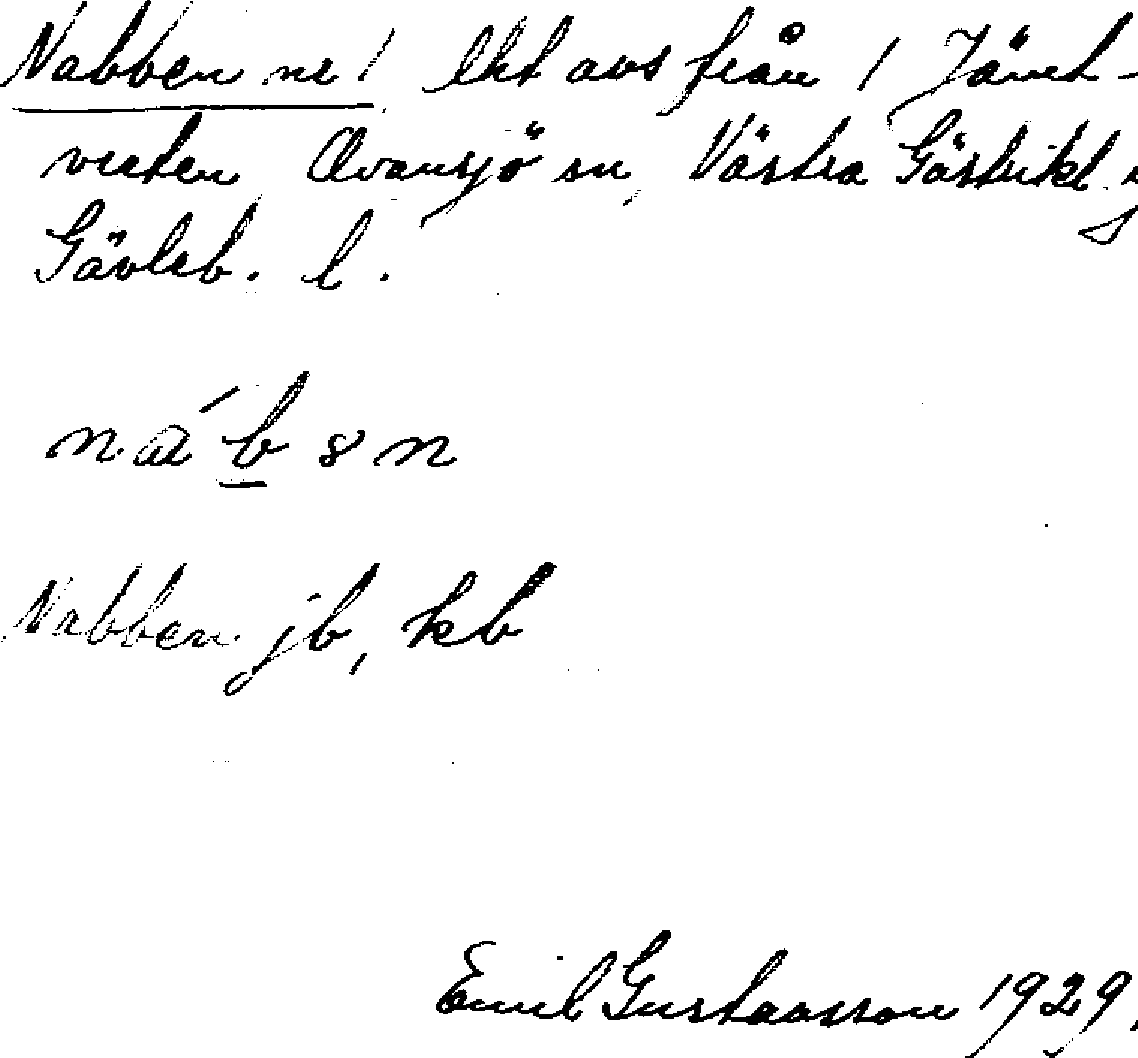 Nabben nr 1, lht avs från 1 Jämt-
vreten, Ovansjö sn, Västra Gästrikl.
Gävleb. l.
nábən
Nabben jb, kb
Emil Gustavsson 1929.